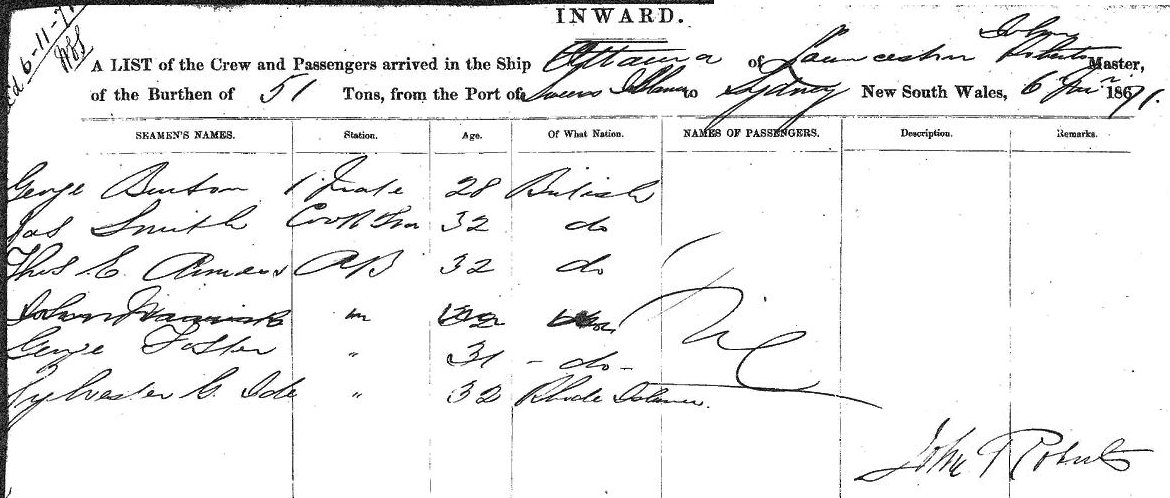 INWARD.
6-11-71
A LIST of the Crew and Passengers arrived in the Ship Ottawa of Launceston John Roberts Master,
of the Burthen of 51 Tons, from the Port of to Sydney New South Wales, 6 1871.
SEAMEN'S NAMES. Station. Age. Of What Nation. NAMES OF PASSENGERS. Description. Remarks.
George Burton Mate 28 British
Jas Smith 32 do
Thos E. AB 32 do
John
George Foster " 31 - do -
Sylvester G. Ide " 32 Rhode Island.
Nil
John T Roberts